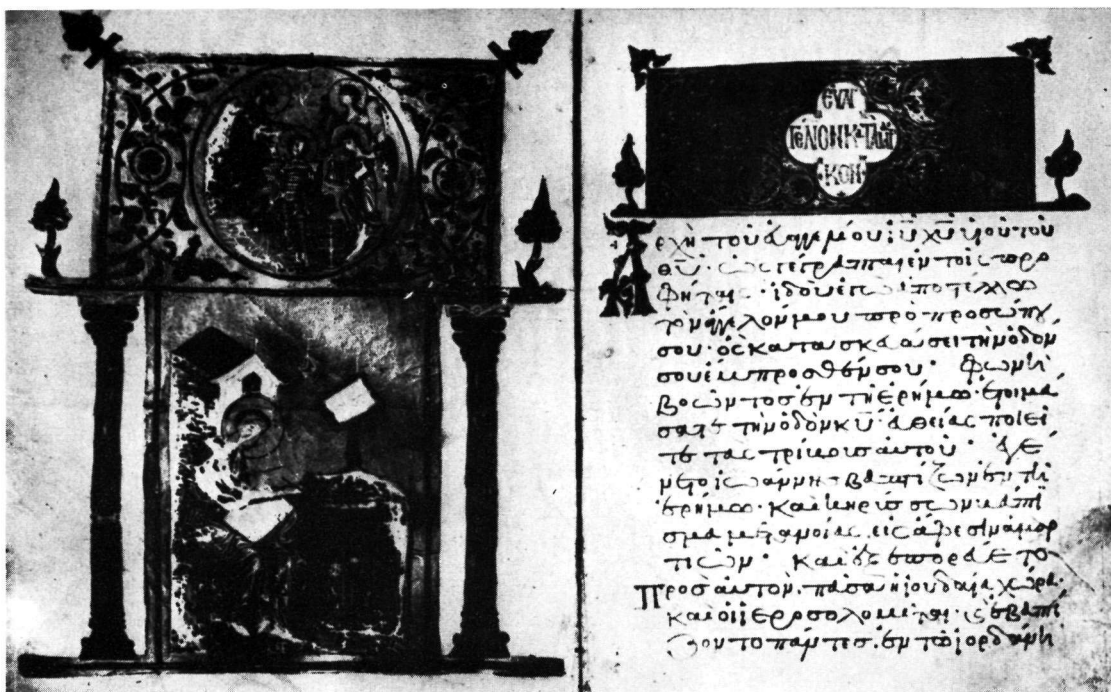 ΕΥΑΓ
ΓΕΛΙΟΝ ΚΑΤΑ ΜΑΡ
ΚΟΝ
Ἀρχὴ τοῦ εὐαγγελίου ἰῦ χῦ υἱοῦ τοῦ
θῦ · ὡς γέγραπται ἐν τοῖς προ
φήταις · ἰδοὺ ἐγὼ ἀποστέλλω
τὸν ἄγγελον μου πρὸ προσώπου
σου · ὃς κατασκευάσει τὴν ὁδόν
σου ἔμπροσθέν σου · φωνὴ
βοῶντος ἐν τῇ ἐρήμω · ἑτοιμά
σατε τὴν ὁδὸν κῦ · εὐθείας ποιεῖ
τε τὰς τρίβους αὐτοῦ · ἐγέ
νετο ἰωάννης βαπτίζων ἐν τῇ
ἐρήμω · καὶ κηρύσσων βάπτι
σμα μετανοίας εἰς ἄφεσιν ἁμαρ
τιῶν · καὶ ἐξεπορεύετο
πρὸς αὐτὸν · πᾶσα ἡ ἰουδαία χώρα ·
καὶ οἱ ἱεροσολυμῖται · καὶ ἐβαπτί
ζοντο πάντες · ἐν τῷ ἰορδάνη